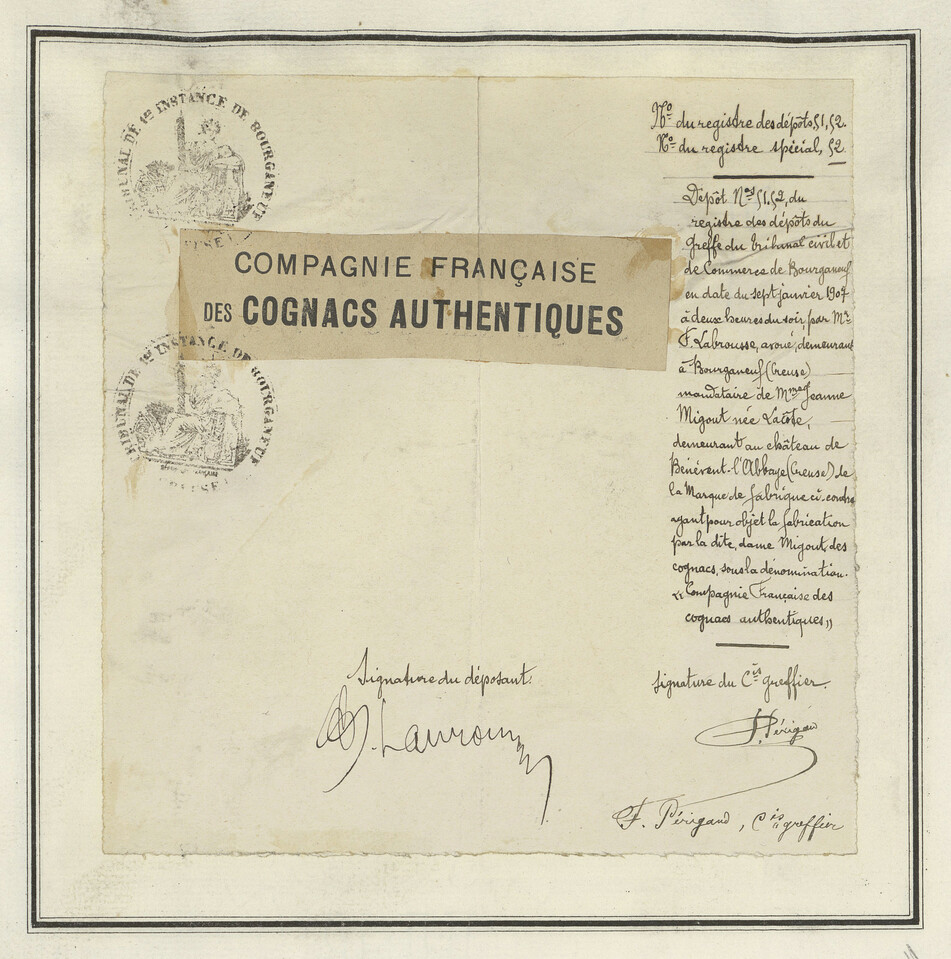 TRIBUNAL DE 1re INSTANCE DE BOURGANEUF
COMPAGNIE FRANÇAISE
DES COGNACS AUTHENTIQUES
TRIBUNAL DE 1re INSTANCE DE BOURGANEUF
CREUSE
No du registre des dépôts, 51, 52.
No du registre spécial, 52
Dépôt Nos 51, 52, du
registre des dépôts du
Greffe du tribunal civil et
de Commerce de Bourganeuf
en date du sept janvier 1907
à deux heures du soir, par Me
F. Labrousse, avoué, demeurant
à Bourganeuf (Creuse)
mandataire de Mme Jeanne
Migout née Lacôte,
demeurant au château de
Bénévent-l'Abbaye (Creuse) de
la Marque de fabrique ci-contre
ayant pour objet la fabrication
par la dite, dame Migout, des
cognacs, sous la dénomination.
« Compagnie Française des
cognacs authentiques »
Signature du déposant:
signature du Cis greffier.
F. Périgaud
F. Périgaud, Cis greffier